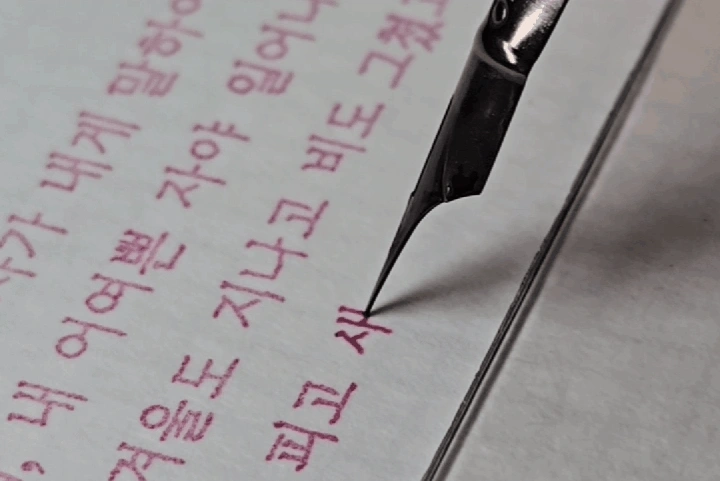 자가 내게 말하여
, 내 어여쁜 자야 일어나
겨울도 지나고 비도 그쳤고
피고 새